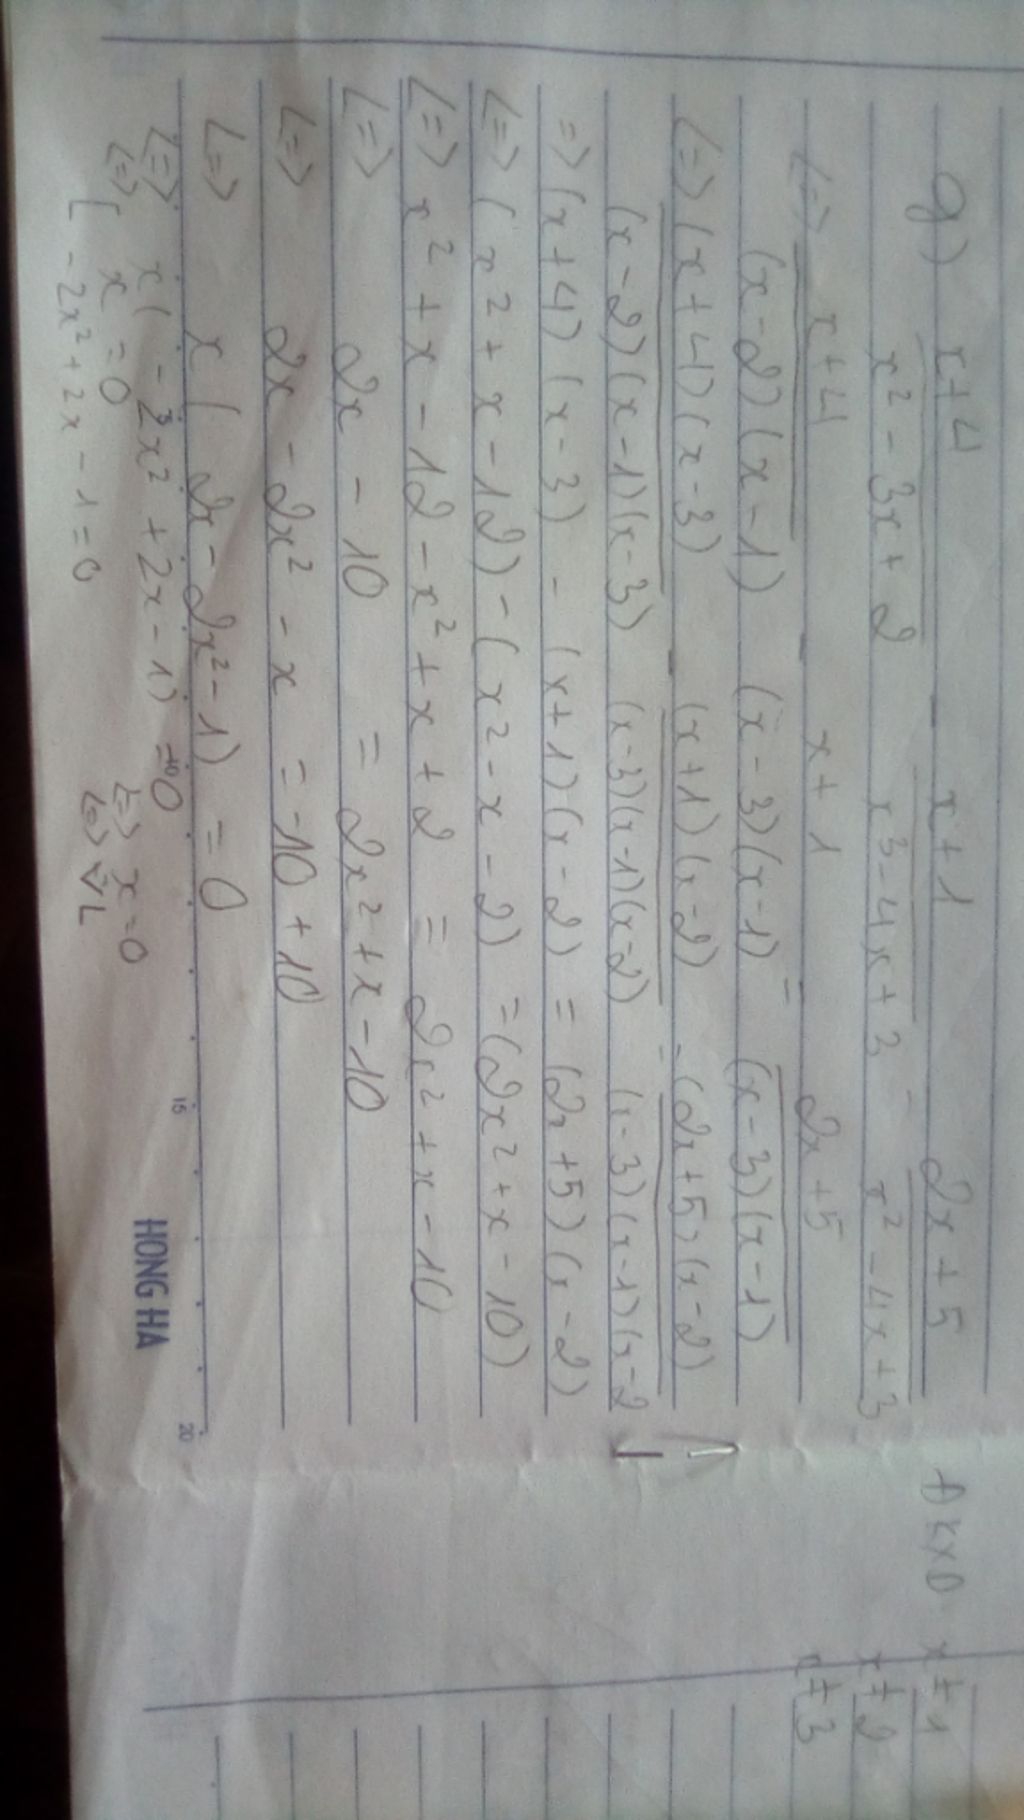 g) x+4 / x² - 3x + 2 - x+1 / x³ - 4x + 3 = 2x + 5 / x² - 4x + 3 ĐKXĐ x ≠ 1
x ≠ 2
x ≠ 3
<=> x+4 / (x-2)(x-1) - x+1 / (x-3)(x-1) = 2x+5 / (x-3)(x-1)
<=> (x+4)(x-3) / (x-2)(x-1)(x-3) - (x+1)(x-2) / (x-3)(x-1)(x-2) = (2x+5)(x-2) / (x-3)(x-1)(x-2
=> (x+4)(x-3) - (x+1)(x-2) = (2x+5)(x-2)
<=> (x² + x - 12) - (x² - x - 2) = (2x² + x - 10)
<=> x² + x - 12 - x² + x + 2 = 2x² + x - 10
<=> 2x - 10 = 2x² + x - 10
<=> 2x - 2x² - x = -10 + 10
<=> x ( 2x - 2x² - 1) = 0
<=> x ( - 2x² + 2x - 1) = 0
<=> [ x = 0 <=> x = 0
- 2x² + 2x - 1 = 0 <=> VL
15
20
HONG HA